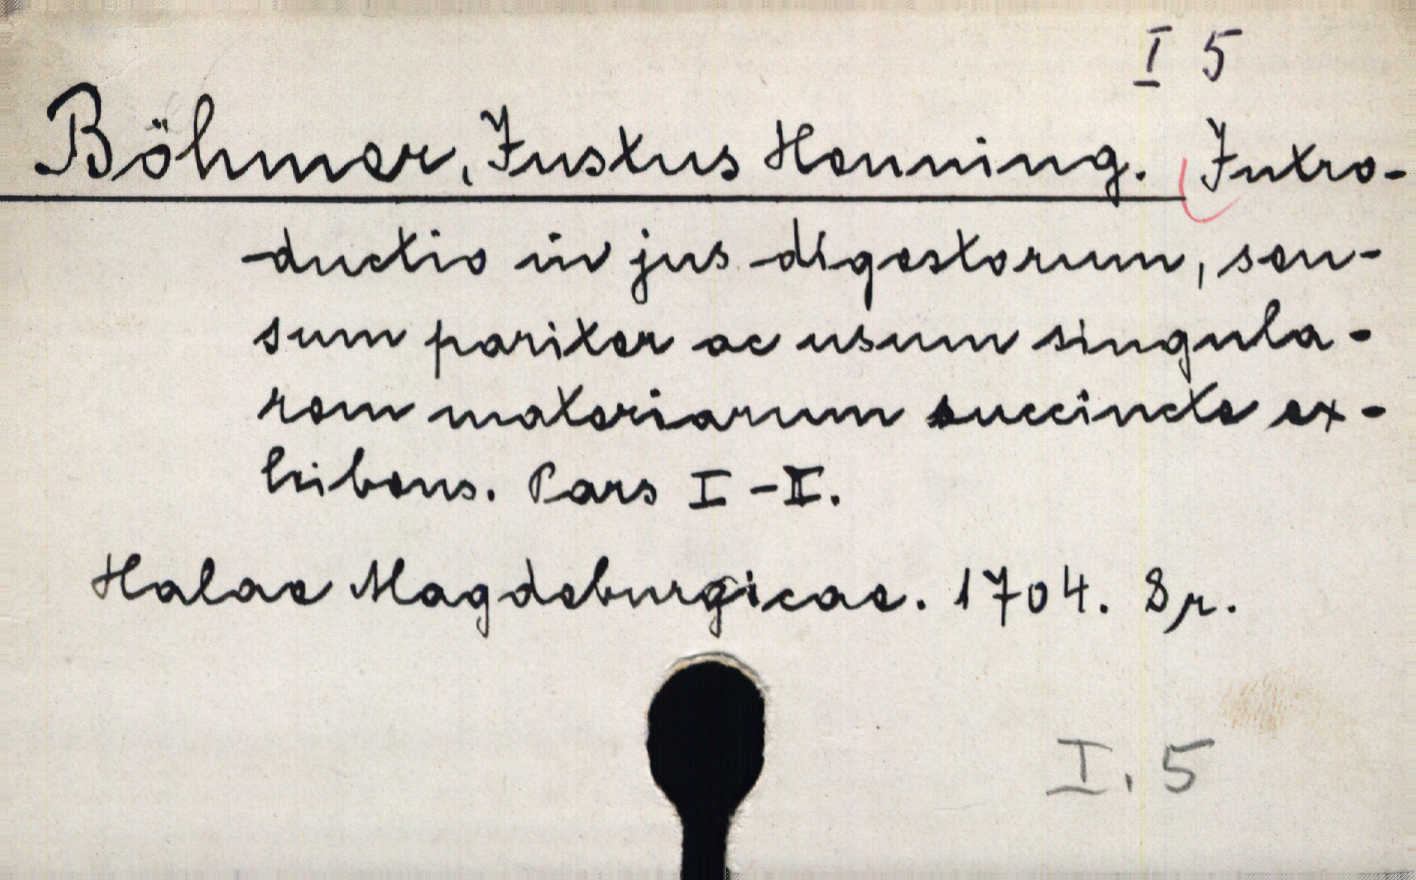 I 5
Böhmer, Justus Henning. Intro-
ductio in jus digestorum, sen-
sum pariter ac usum singula-
rem materiarum succincte ex-
hibens. Pars I-II.
Halae Magdeburgicae. 1704. 8r.
I. 5